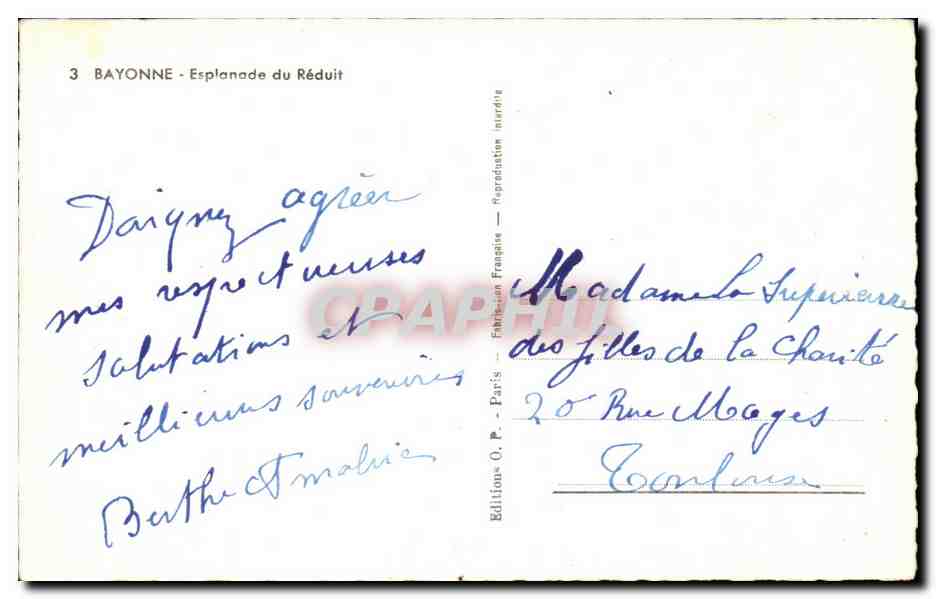 3 BAYONNE - Esplanade du Réduit
Daignez agréer
mes respectueuses
salutations et
meilleurs souvenirs
Berthe et
Editions O. P. - Paris — Fabrication Française — Reproduction interdite
Madame la Supérieure
des filles de la Charité
20 Rue Mages
Toulouse
CPAPHIL